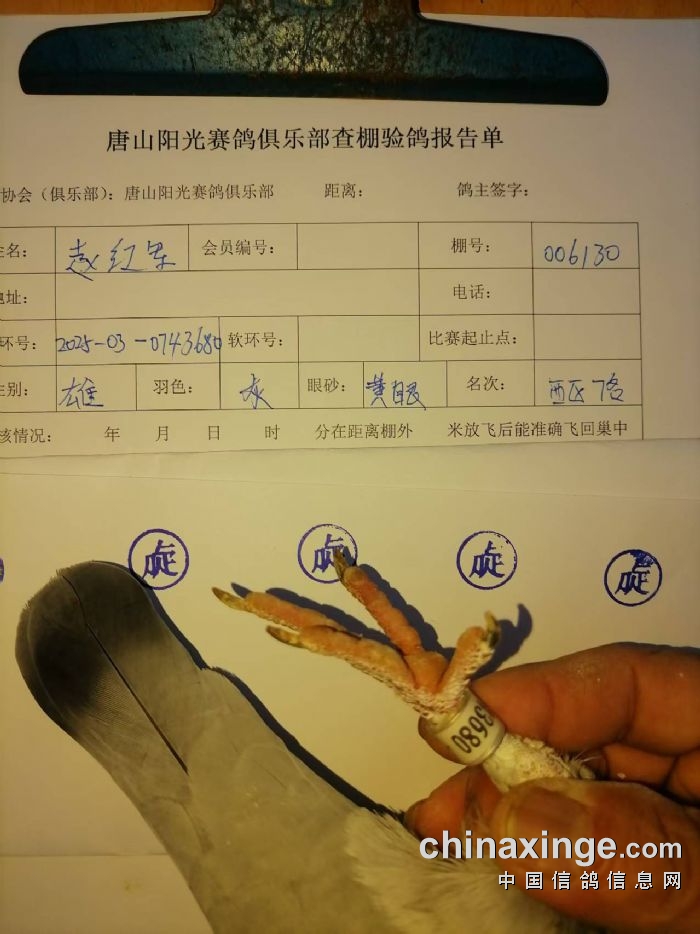 唐山阳光赛鸽俱乐部查棚验鸽报告单
协会（俱乐部）：唐山阳光赛鸽俱乐部 距离： 鸽主签字：
姓名： 赵红军 会员编号： 棚号： 006130
地址： 电话：
环号： 2025-03-0743680 软环号： 比赛起止点：
性别： 雄 羽色： 灰 眼砂： 黄眼 名次： 西区7名
核情况： 年 月 日 时 分在距离棚外 米放飞后能准确飞回巢中
3680
chinaxinge.com
中国信鸽信息网